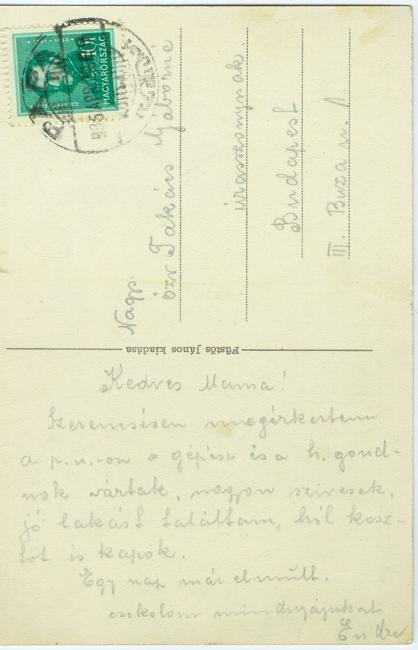 MAGYARORSZÁG
Nagys.
özv Takács Gáborné
úrasszonynak
Budapest
III. Buza u. 1.
Püstös János kiadása
Kedves Mama!
Szerencsésen megérkeztem
a p.u.-on a gépész és a h. gond-
nok vártak, nagyon szivesek,
jó lakást találtam, hól kosz-
tot is kapok.
Egy nap már elmúlt.
csokolom mindnyájukat
Endre